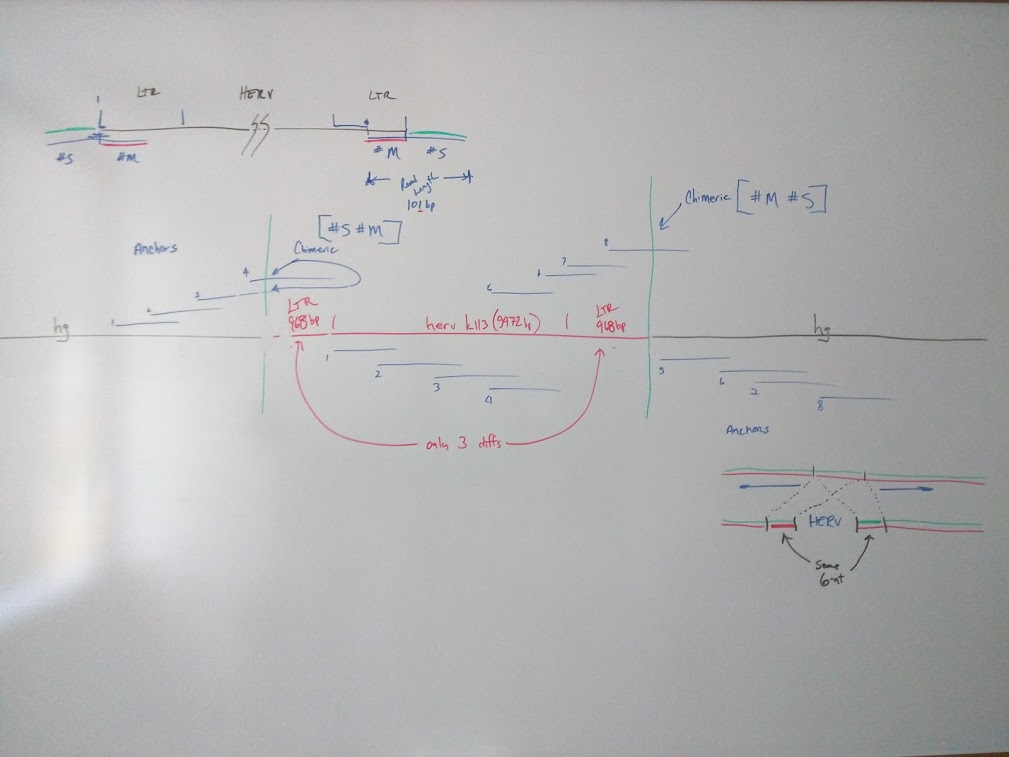 LTR HERV LTR
#S #M #M #S
Read
Length
101bp
[#S #M]
Chimeric [#M #S]
Anchors
Chimeric
8
4
7
3
6
2
1
LTR
968bp
herv k113 (9472b)
LTR
968bp
hg
hg
1
2
3
4
5
6
7
8
only 3 diffs
Anchors
HERV
Same
6-nt